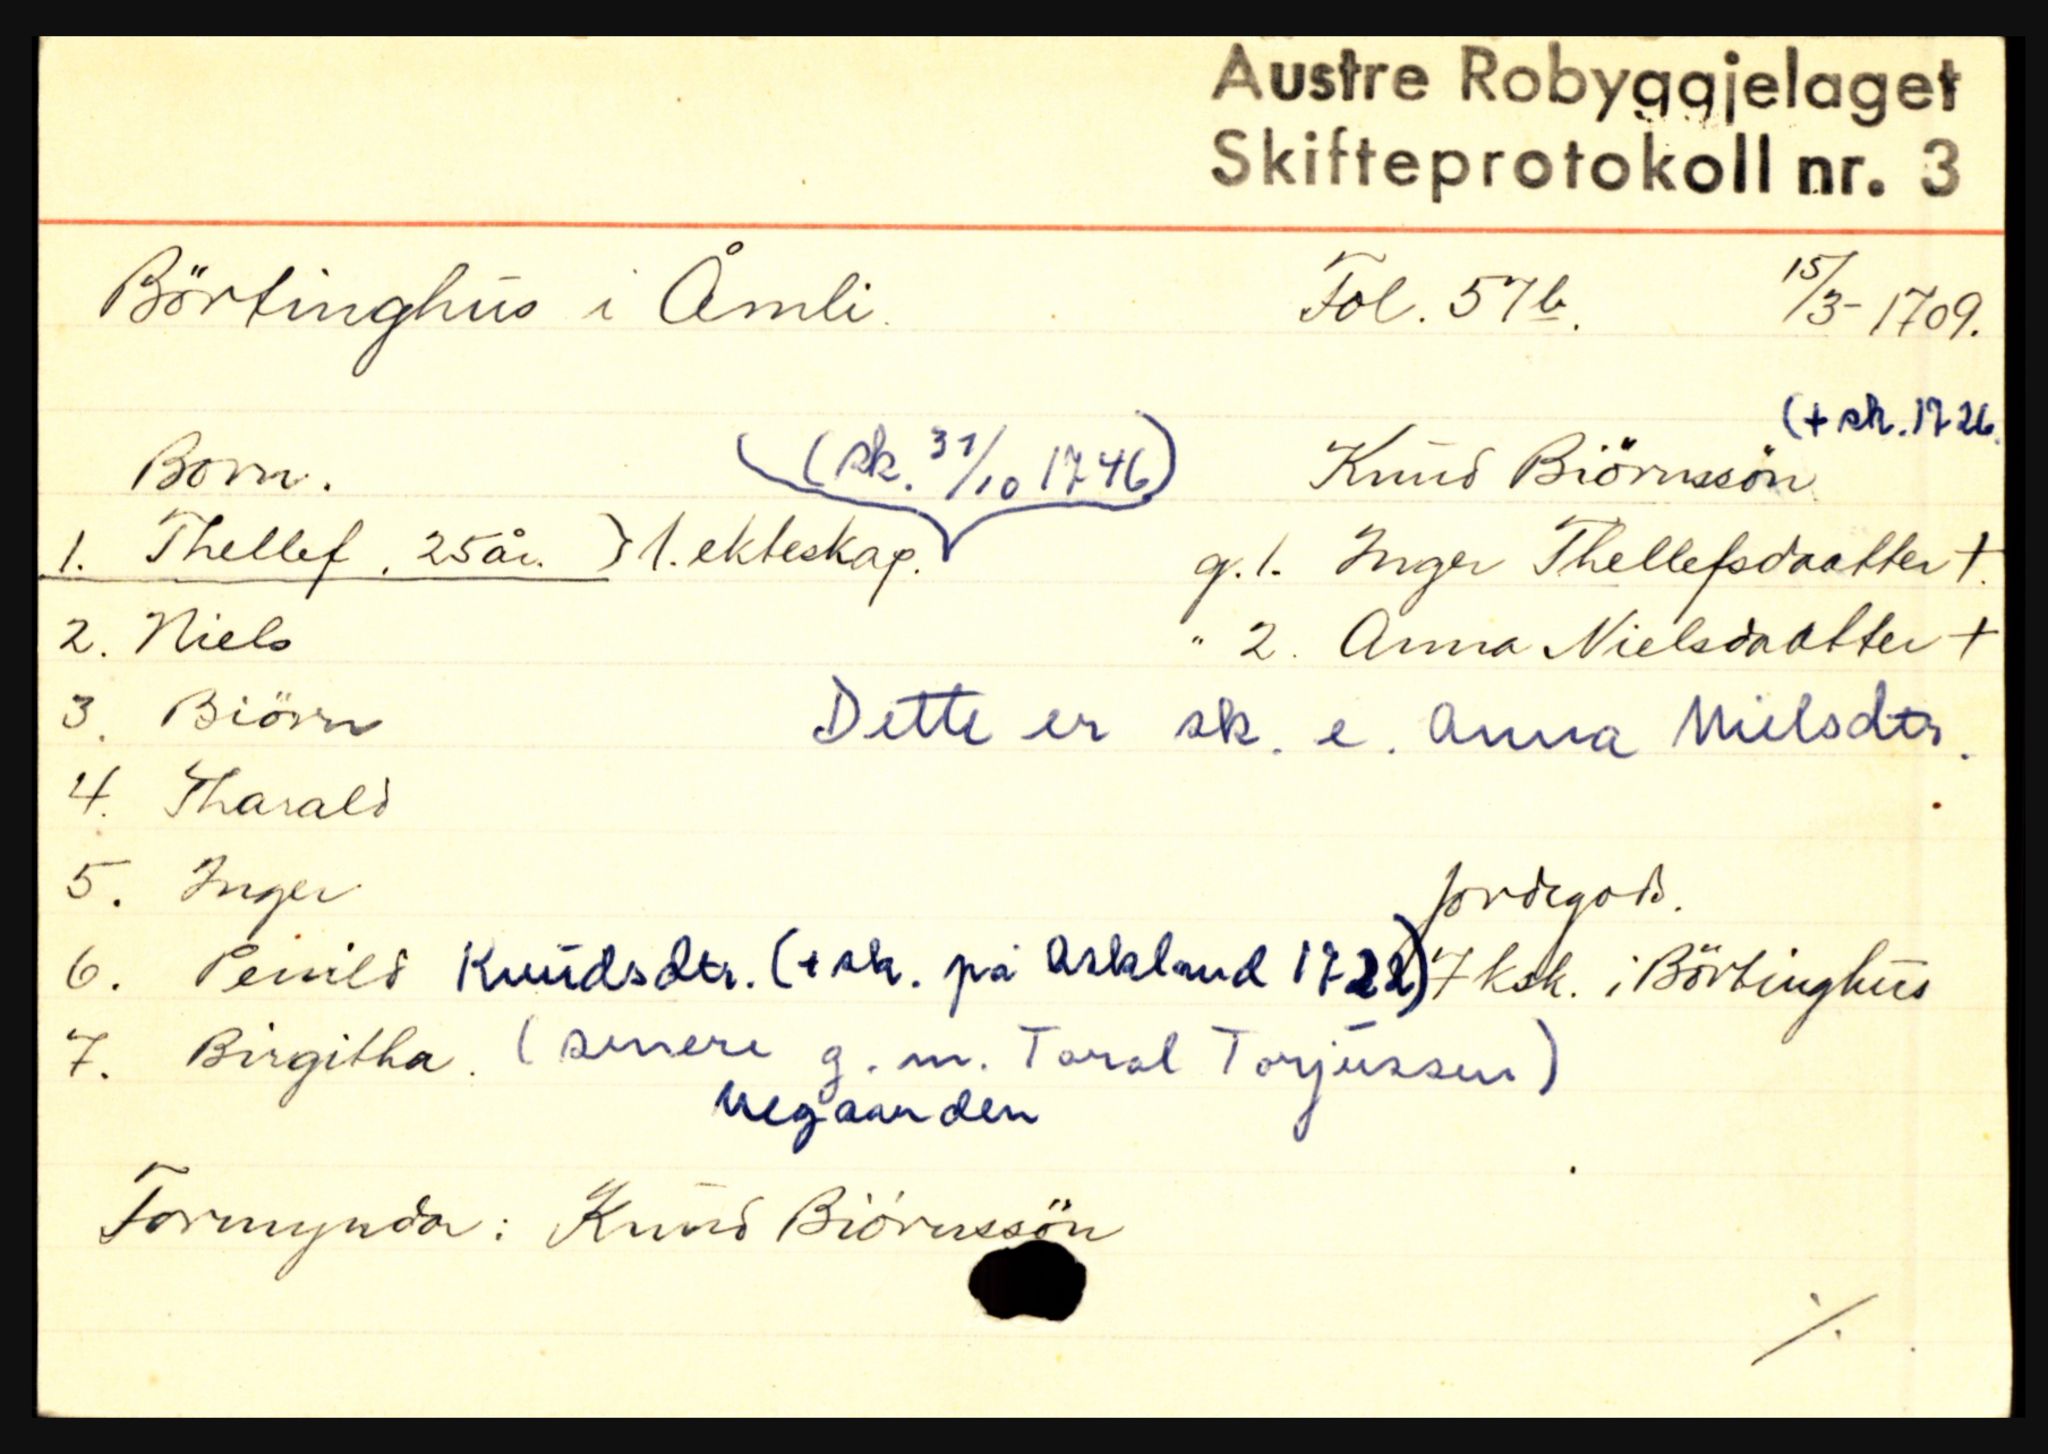 Austre Robyggjelaget
Skifteprotokoll nr. 3
Börtinghus i Åmli. Fol. 57b. 15/3-1709.
(+ sk. 1726.
Born. (sk. 31/10 1746) Knud Biörnssön
1. Thellef, 25 år. } 1. ekteskap. g. 1. Inger Thellefsdaatter +.
2. Niels " 2. Anna Nielsdaatter +
3. Biörn Dette er sk. e. Anna Nielsdtr.
4. Tharald
5. Inger Jordegods.
6. Pernild Knudsdtr. (+ sk. på Askland 1722) 7 ksk. i Börtinghus
7. Birgitha. (senere g. m. Taral Torjussen)
Negaarden
Formynder: Knud Biörnssön
/.